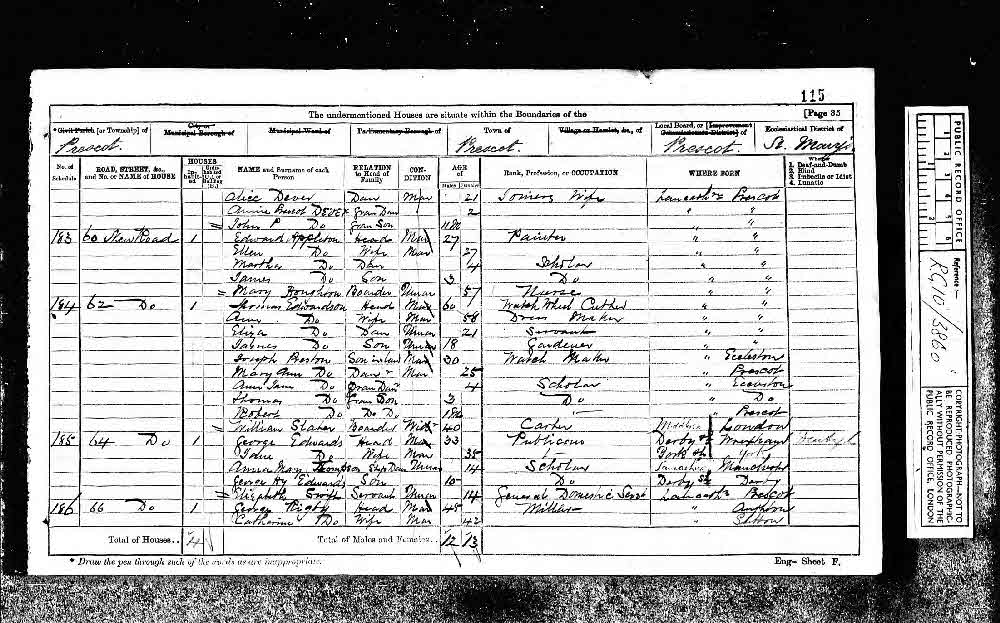 115
The undermentioned Houses are situate within the Boundaries of the [Page 35
* Civil Parish [or Township] of City or Municipal Borough of Municipal Ward of Parliamentary Borough of Town of Village or Hamlet, &c., of Local Board, or [Improvement Commissioners District] of Ecclesiastical District of
Prescot. Prescot. Prescot. St. Mary's
No. of Schedule ROAD, STREET, &c., and No. or NAME of HOUSE HOUSES Inhabited NAME and Surname of each Person RELATION to Head of Family CONDITION AGE of Males Females Rank, Profession, or OCCUPATION WHERE BORN Whether 1. Deaf-and-Dumb 2. Blind 3. Imbecile or Idiot 4. Lunatic
Alice Dever Daur Mar 21 Wife Lancash Prescot
Annie Prescot DEVER Gran Daur 2 " "
John P Do Gran Son " "
183 60 Road 1 Edward Appleton Head Mar 27 Painter " "
Ellen Do Wife Mar 27 " "
Martha Do Daur 4 Scholar " "
James Do Son 3 Do " "
Mary Boarder Unmar 57 Nurse " "
184 62 Do 1 Thomas Edwardson Head Mar 60 Watch Wheel Cutter " "
Ann Do Wife Mar 58 Dress Maker " "
Eliza Do Daur Unmar 21 Servant " "
James Do Son Unmar 18 Gardener " "
Joseph Preston Son in law Mar 30 Watch Maker " Eccleston
Mary Ann Do Daur Mar 25 " Prescot
Ann Jane Do Gran Daur 4 Scholar " Eccleston
Thomas Do Gran Son 3 Do " Do
Robert Do Do Do " Prescot
William Slater Boarder 40 Carter London
185 64 Do 1 George Edwards Head Mar 33 Publican Derby Wrexham
Jane Do Wife Mar 35 York
Anna Mary Thompson Step Daur Unmar 14 Scholar Lancashr Manchester
George Hy Edwards Son 10 Do Derby Derby
Elizabeth Swift Servant Unmar 14 General Domestic Servt Lancash Prescot
186 66 Do 1 George Rigby Head Mar 45 Miller "
Catharine Do Wife Mar 42 " Sutton
Total of Houses.. 4 Total of Males and Females.. 12 13
* Draw the pen through such of the words as are inappropriate.
Eng- Sheet F.
PUBLIC RECORD OFFICE
Reference:-
RG10/3860
COPYRIGHT PHOTOGRAPH—NOT TO BE REPRODUCED PHOTOGRAPHICALLY WITHOUT PERMISSION OF THE PUBLIC RECORD OFFICE, LONDON